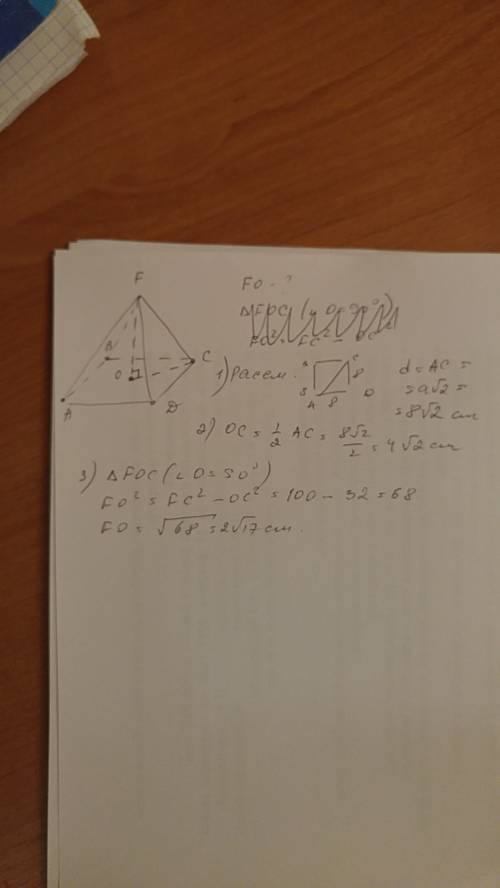 F
B
C
O
A
D
FO - ?
1) Рассм.
C
8
A 8 D
d = AC =
= a√2 =
= 8√2 см
2) OC = 1/2 AC = 8√2/2 = 4√2 см
3) ΔFOC (∠O = 90°)
FO² = FC² - OC² = 100 - 32 = 68
FO = √68 = 2√17 см.